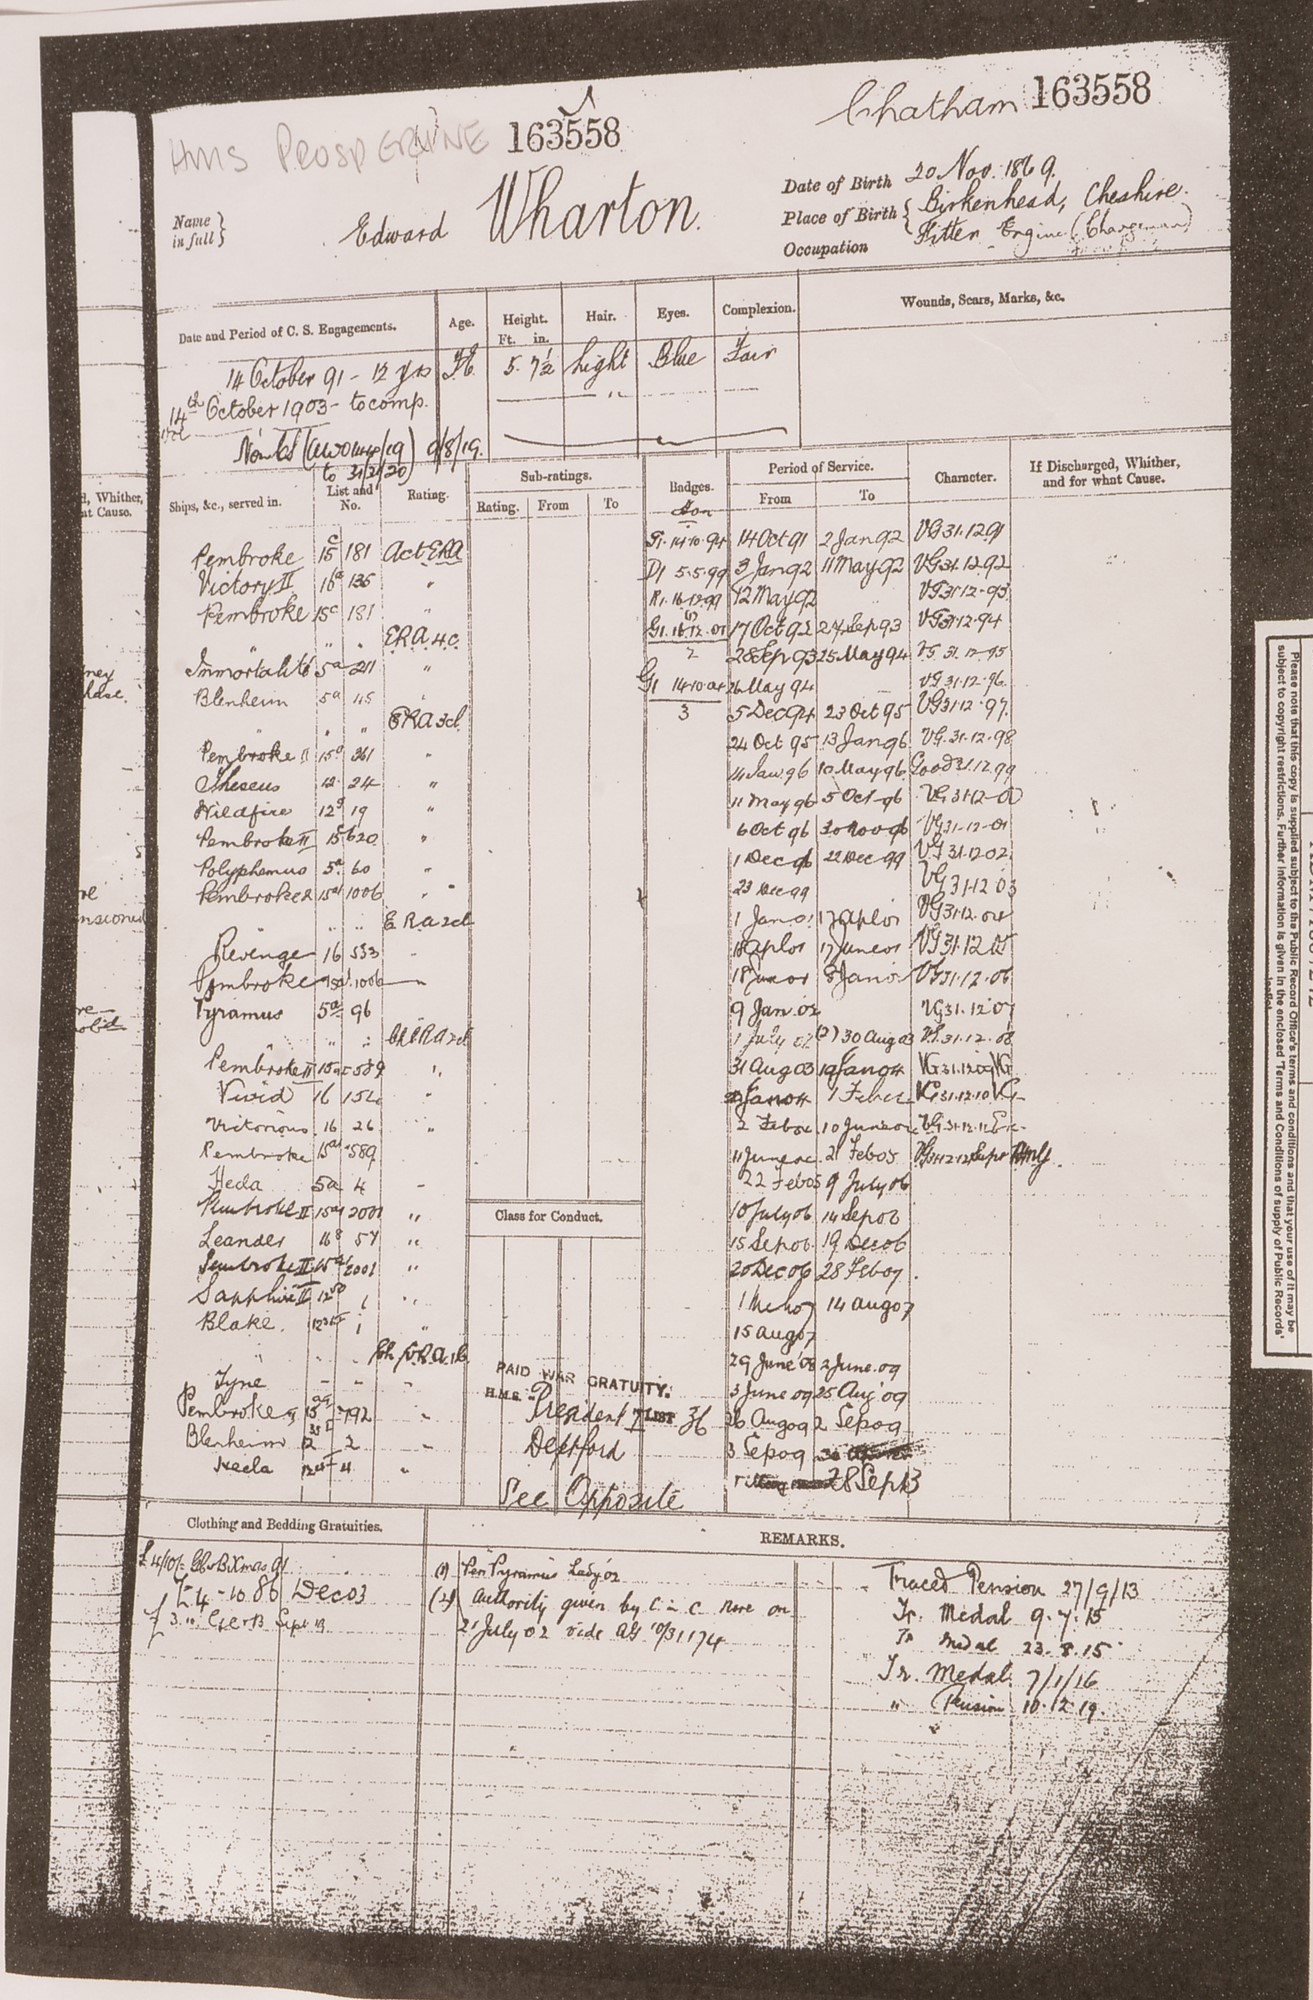 HMS PROSPERINE 163558 Chatham 163558
Name in full } Edward Wharton.
Date of Birth 20 Nov. 1869.
Place of Birth { Birkenhead, Cheshire.
Occupation Fitter Engine (Chargeman)
Date and Period of C. S. Engagements. Age. Height. Ft. in. Hair. Eyes. Complexion. Wounds, Scars, Marks, &c.
14 October 91 - 12 yrs 5. 7½ Light Blue Fair
14th October 1903 - to comp. "
to 31/2/20) 9/8/19.
Ships, &c., served in. List and No. Rating. Sub-ratings. Rating. From To Badges. Period of Service. From To Character. If Discharged, Whither, and for what Cause.
Pembroke 15c 181 Act ERA G1. 14.10.94 14 Oct 91 2 Jan 92 VG 31.12.91
Victory II 16a 135 " D1 5.5.99 3 Jan 92 11 May 92 VG 31.12.92
Pembroke 15c 181 " R1. 16.12.99 12 May 92 VG 31.12.93
" " ERA 4c. G1. 16.12.01 17 Oct 92 27 Sep 93 VG 31.12.94
Immortalité 5a 211 " 2 28 Sep 93 25 May 94 VG 31.12.95
Blenheim 5a 45 " G1 14.10.04 26 May 94 VG 31.12.96
" " ERA 3cl. 3 5 Dec 94 23 Oct 95 VG 31.12.97.
Pembroke II 15a 361 " 24 Oct 95 13 Jan 96 VG 31.12.98
Theseus 12 24 " 14 Jan 96 10 May 96 Good 31.12.99
Wildfire 12a 19 " 11 May 96 5 Oct 96 VG 31-12-00
Pembroke II 15 620 " 6 Oct 96 30 Nov 96 VG 31-12-01
Polyphemus 5a 60 " 1 Dec 96 22 Dec 99 VG 31.12.02
Pembroke 2 15a1 1006 " 23 Dec 99 VG 31.12.03
" " ERA 2cl 1 Jan 01 17 Apl 01 VG 31.12.04
Revenge 16 533 " 18 Apl 01 17 June 01 VG 31.12.05
Pembroke 15a1 1006 " 18 June 01 8 Jan VG 31.12.06
Pyramus 5a 96 9 Jan 02 VG 31.12.07
" " Ch ERA 2cl 1 July 02 (2) 30 Aug 03 VG 31.12.08
Pembroke II 15a 589 " 31 Aug 03 19 Jan 04 VG 31.12.09 VG
Vivid 16 154 " Jan 04 1 Feb 04 VG 31.12.10 VG
Victorious 16 26 " 2 Feb 04 10 June 04 VG 31.12.11
Pembroke 15a1 589 11 June 04 21 Feb 05 VG 31.12.12 Supr
Hecla 5a 4 - 22 Feb 05 9 July 06
Pembroke II 15a1 2001 " 10 July 06 14 Sep 06
Class for Conduct.
Leander 16a 57 " 15 Sep 06 19 Dec 06
Pembroke II 15a1 2001 " 20 Dec 06 28 Feb 07.
Sapphire II 12 1 " 1 Mch 07 14 Aug 07
Blake. 1 " 15 Aug 07
" " Ch E.R.A. 1c. 29 June '08 2 June 09
Tyne - " " PAID WAR GRATUITY. 3 June 09 25 Aug '09
Pembroke II 792 " H.M.S. President I LIST 36 26 Aug 09 2 Sep 09
Blenheim 12 2 " Deptford 3 Sep 09
Hecla 4 " 28 Sep 13
See Opposite
Clothing and Bedding Gratuities. REMARKS.
£4/10/- G&B Xmas 91
£4 - 10 86 Dec 03
£3. C&B Sept 13
(1) Per Pyramus Lady '02
(2) Authority given by C in C Nore on
21 July 02 vide AG
Traced Pension 27/9/13
Tr. Medal 9.7.15
Tr Medal 23.8.15
Tr. Medal 7/1/16
" Pension 10.12.19.
, Whither,
at Cause.
Please note that this copy is supplied subject to the Public Record Office's terms and conditions and that your use of it may be
subject to copyright restrictions. Further information is given in the enclosed 'Terms and Conditions of supply of Public Records'
leaflet